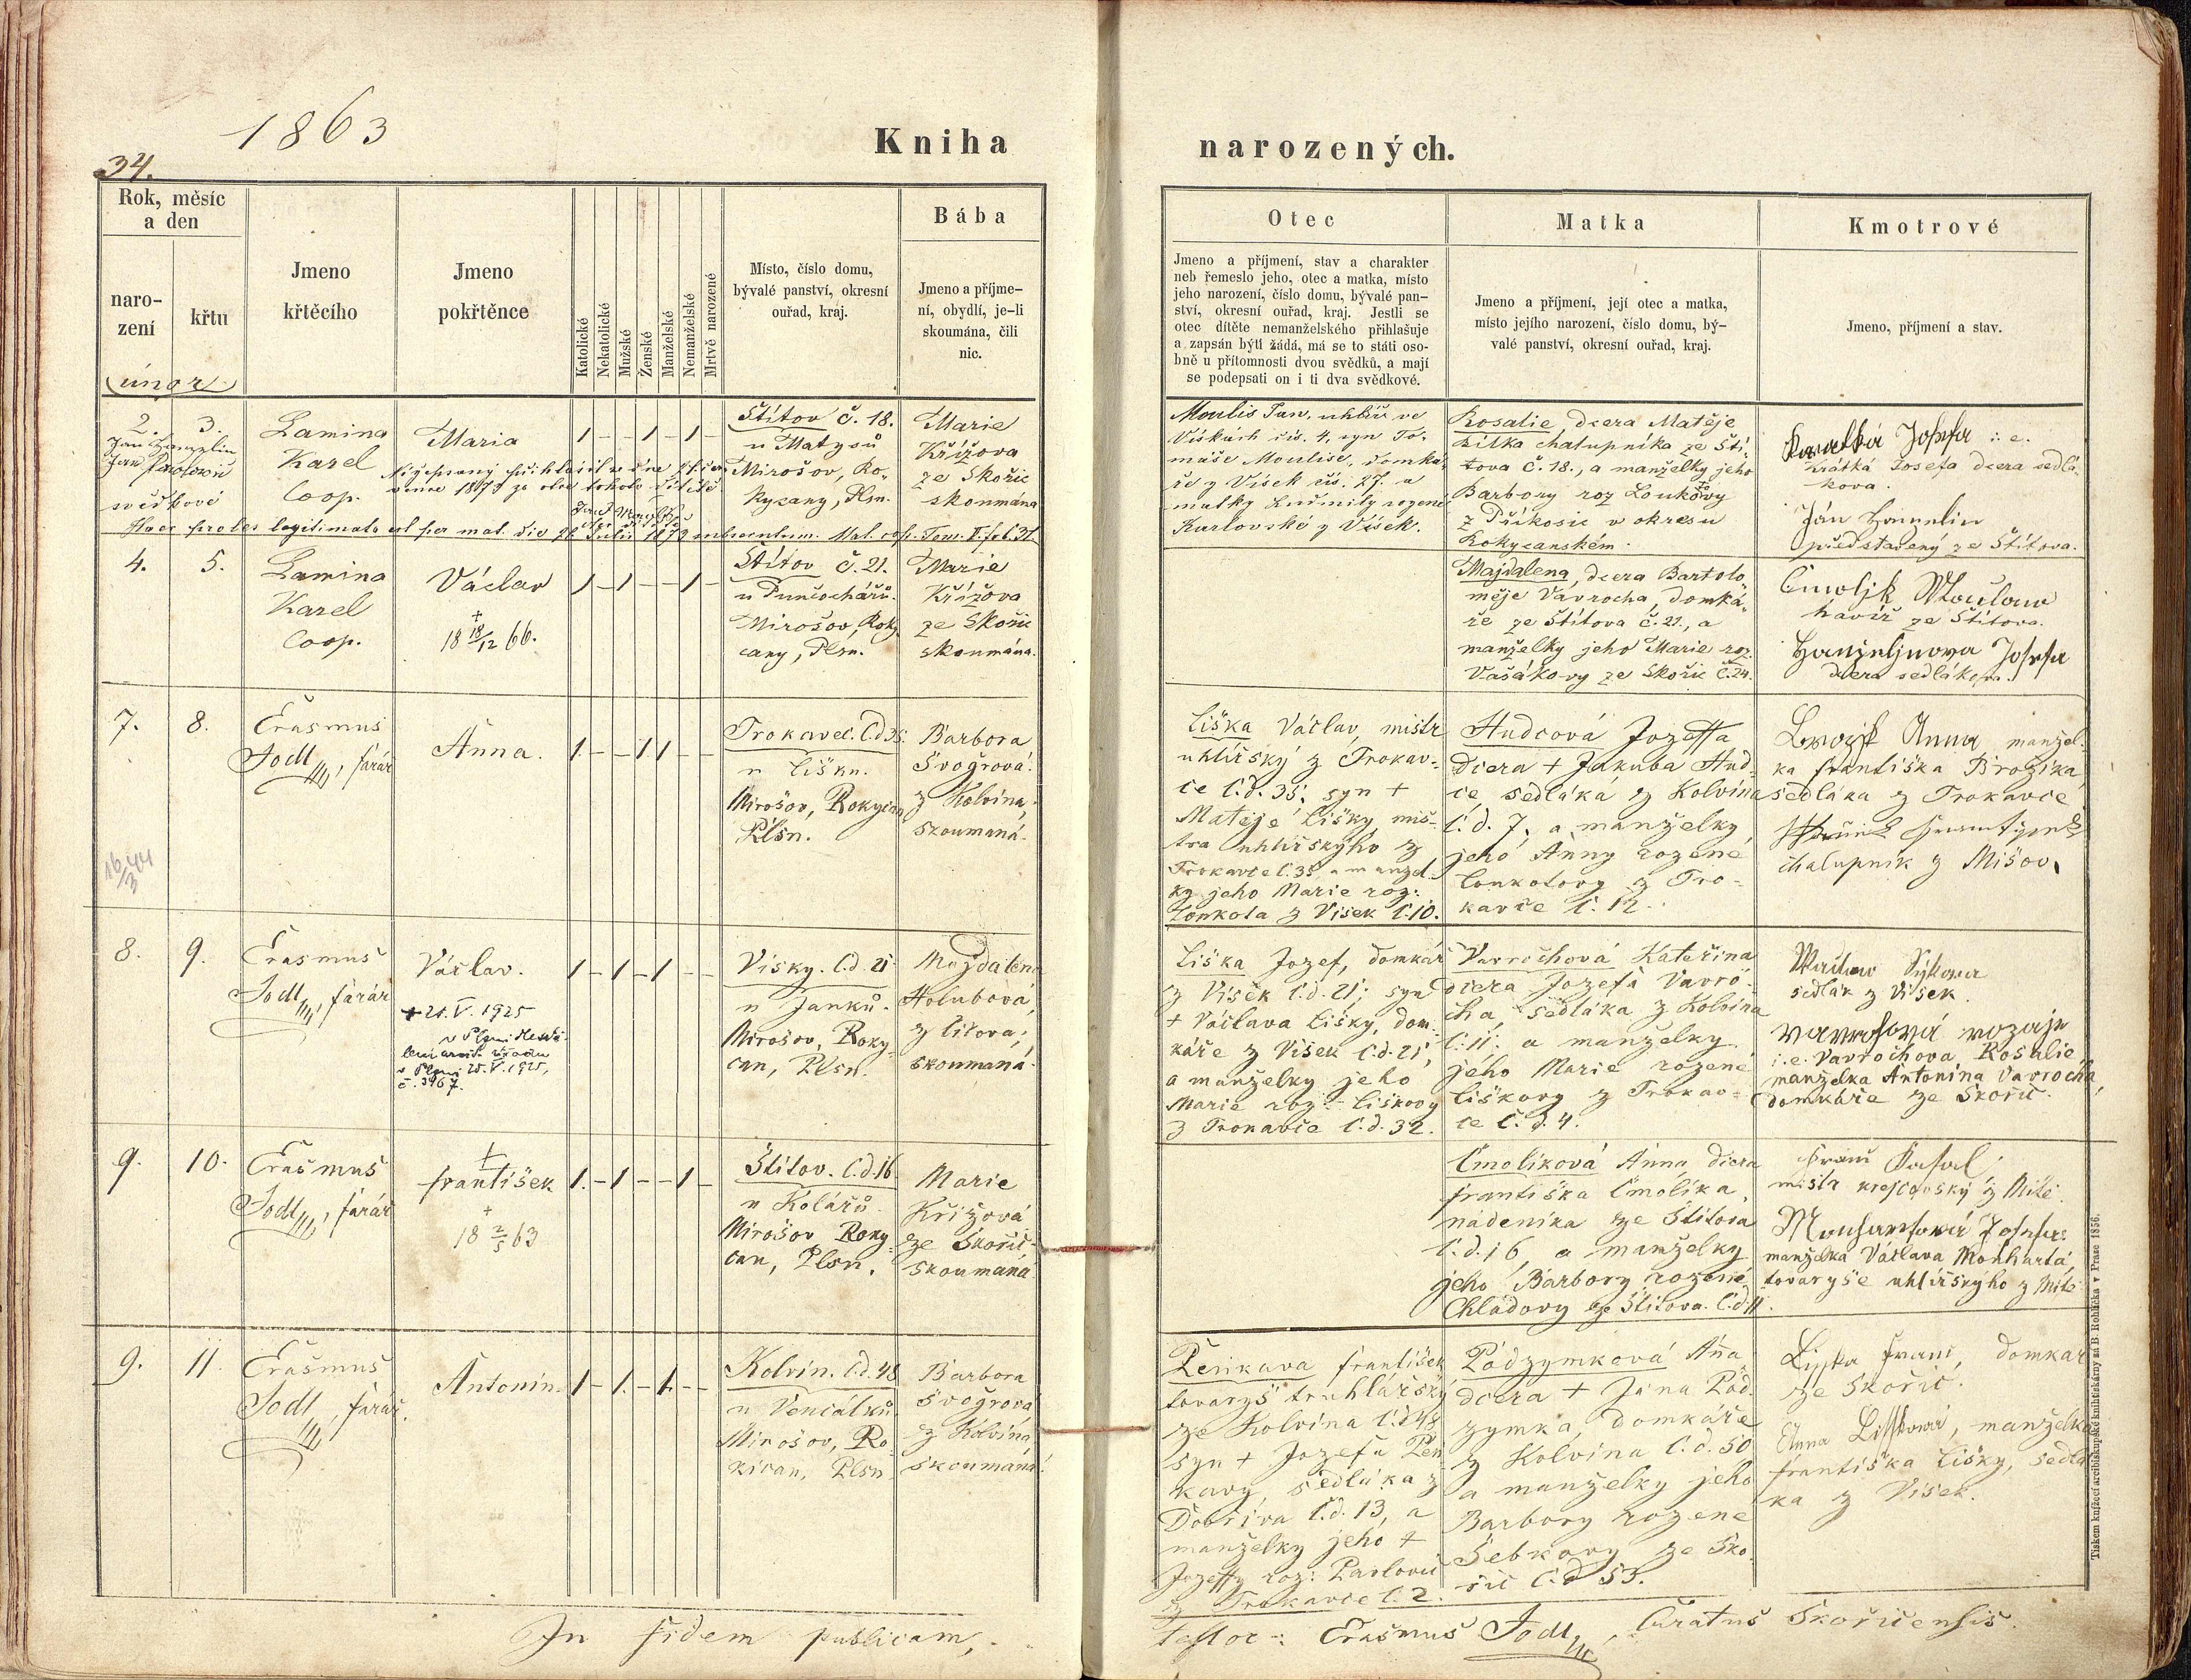 1863
Kniha
narozených.
34.
Rok, měsíc
a den
naro-
zení
křtu
únor
Jmeno
křtěcího
Jmeno
pokřtěnce
Katolické
Nekatolické
Mužské
Ženské
Manželské
Nemanželské
Mrtvě narozené
Místo, číslo domu,
bývalé panství, okresní
ouřad, kraj.
Bába
Jmeno a příjme-
ní, obydlí, je-li
skoumána, čili
nic.
Otec
Jmeno a příjmení, stav a charakter
neb řemeslo jeho, otec a matka, místo
jeho narození, číslo domu, bývalé pan-
ství, okresní ouřad, kraj. Jestli se
otec dítěte nemanželského přihlašuje
a zapsán býti žádá, má se to státi oso-
bně u přítomnosti dvou svědků, a mají
se podepsati on i ti dva svědkové.
Matka
Jmeno a příjmení, její otec a matka,
místo jejího narození, číslo domu, bý-
valé panství, okresní ouřad, kraj.
Kmotrové
Jmeno, příjmení a stav.
2. 3.
svědkové
Lamina
Karel
Coop.
Maria
1 - - 1 - 1 -
Štítov č. 18.
u Matysů
Mirošov, Ro-
kycany, Plsn.
Marie
Křížova
ze Skořic
skoumána
Moulis Jan, uhlíř ve
Vískách čís. 4, syn To-
máše Moulise, domká-
ře z Vísek čís. 27. a
matky Ludmily rozené
Kurlovské z Vísek.
Rosalie, dcera Matěje
Bílka chalupníka ze Ští-
tova č. 18., a manželky jeho
Barbory roz Loukotovy
z Příkosic v okresu
Rokycanském.
Kratká Josefa i. e.
Krátká Josefa dcera sedlá-
kova.
představený ze Štítova.
Haec proles legitimata est per mat. die 22 Julii 1873
4. 5.
Lamina
Karel
Coop.
Václav
+
18 18/12 66.
1 - 1 - - 1 -
Štítov č. 21.
u Punčochářů.
Mirošov, Roky
cany, Plsn.
Marie
Křížova
ze Skořic
skoumána.
Majdalena, dcera Bartolo-
měje Vavrocha, domká-
ře ze Štítova č. 21., a
manželky jeho Marie roz.
Vašákovy ze Skořic č. 24.
havíř ze Štítova.
Josefa
dcera sedlákova.
7. 8.
Erasmus
Jodl, farář
Anna.
1 - - 1 1 - -
Trokavec. č.d 35.
u Lišku.
Mirošov, Rokycan
Plsn.
Barbora
Švogrová
z Kolvína,
skoumaná.
Liška Václav, mistr
uhlířský z Trokav-
ce č.d. 35; syn +
Matěje Lišky mis-
tra uhlířskýho z
Trokavce č. 35 a manžel-
ky jeho Marie roz:
Lonkota z Vísek č. 10.
Hudcová Jozeffa
dcera + Jakuba Hud-
ce sedláka z Kolvína
č.d. 7. a manželky
jeho Anny rozené
Lonkotovy z Tro-
kavce č. 12.
Anna, manžel-
ka Františka Brožíka
sedláka z Trokavce
chalupník z Mišov.
16/3 44
8. 9.
Erasmus
Jodl, farář
Václav.
+ 21. V. 1925
v Plzni 25. V. 1925,
č. 3967.
1 - 1 - 1 - -
Vísky. č.d. 21
u Janků.
Mirošov, Roky-
can, Plsn.
Majdalena
Holubová,
skoumaná.
Liška Jozef, domkář
z Vísek č.d. 21; syn
+ Václava Lišky, dom-
káře z Vísek č.d. 21,
a manželky jeho
Marie roz: Liškovy
z Trokavce č.d. 32.
Vavrochová Kateřina
dcera Jozefa Vavro-
cha, sedláka z Kolvína
č. 11; a manželky
jeho Marie rozené
Liškovy z Trokav-
ce č.d. 4.
Václav Sýkora
sedlák z Vísek.
i. e. Vavrochova Rosalie,
manželka Antonína Vavrocha,
domkáře ze Skořic.
9. 10.
Erasmus
Jodl, farář
+
František
+
18 2/5 63
1 - 1 - - 1 -
Štítov. č.d. 16
u Kolářů.
Mirošov Roky-
can, Plsn.
Marie
Křižová
ze Skořic,
skoumaná
Čmolíková Anna, dcera
Františka Čmolíka,
nádeníka ze Štítova
č.d. 16, a manželky
jeho Barbory rozené
Chladovy ze Štítova. č.d. 11.
mistr krejčovský z Mítě.
manželka Václava Monharta,
tovaryše uhlířskýho z Mítě
9. 11.
Erasmus
Jodl, farář.
Antonín.
1 - 1 - 1 - -
Kolvín. č.d. 48
u Venclíků
Mirošov, Ro
kican, Plsn
Barbora
Švogrová
z Kolvína,
skoumaná.
Peníkava František
tovaryš truhlářský
ze Kolvína č.d 48
syn + Jozefa Peň
kavy, sedláka z
Dobříva č.d. 13, a
manželky jeho +
Jozeffy roz: Pavlovic
z Trokavce č. 2.
Podzymková Anna
dcera + Jana Pod-
zymka, domkáře
z Kolvína č.d. 50
a manželky jeho
Barbory rozené
Šebkovy ze Sko-
řic č.d 53.
Liška Franc, domkář
ze Skořic.
Anna Lišková, manželka
Františka Lišky, sedlá
ka z Vísek.
In fidem publicam,
testor: Erasmus Jodl, Curatus Skořicensis.
Tiskem knížecí arcibiskupské knihtiskárny na B. Rohlíčka v Praze 1856.